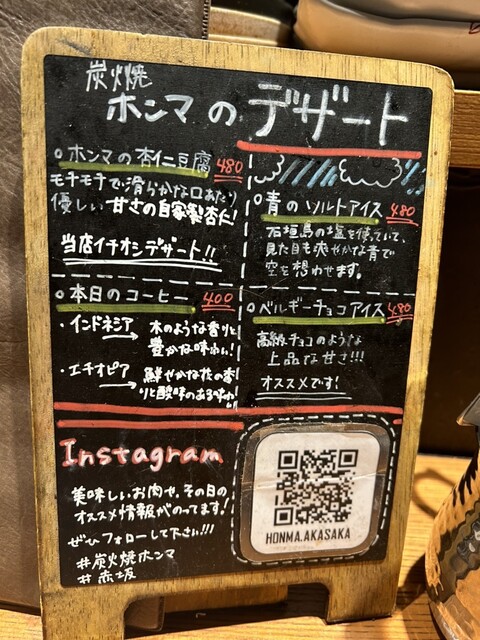 炭火焼
ホンマのデザート
○ホンマの杏仁豆腐 480
モチモチで滑らかな口あたり
優しい甘さの自家製杏仁!
当店イチオシデザート!!
○青のソルトアイス 480
石垣島の塩を使っていて、
見た目も爽やかな青で
空を想わせます。
○本日のコーヒー 400
・インドネシア → 木のような香りと
豊かな味わい!
・エチオピア → 鮮やかな花の香
りと酸味のある味わい
○ベルギーチョコアイス 480
高級チョコのような
上品な甘さ!!!
オススメです!
Instagram
美味しいお肉や、その日の
オススメ情報がのってます!
ぜひフォローして下さい!!!
#炭火焼ホンマ
#赤坂
HONMA.AKASAKA